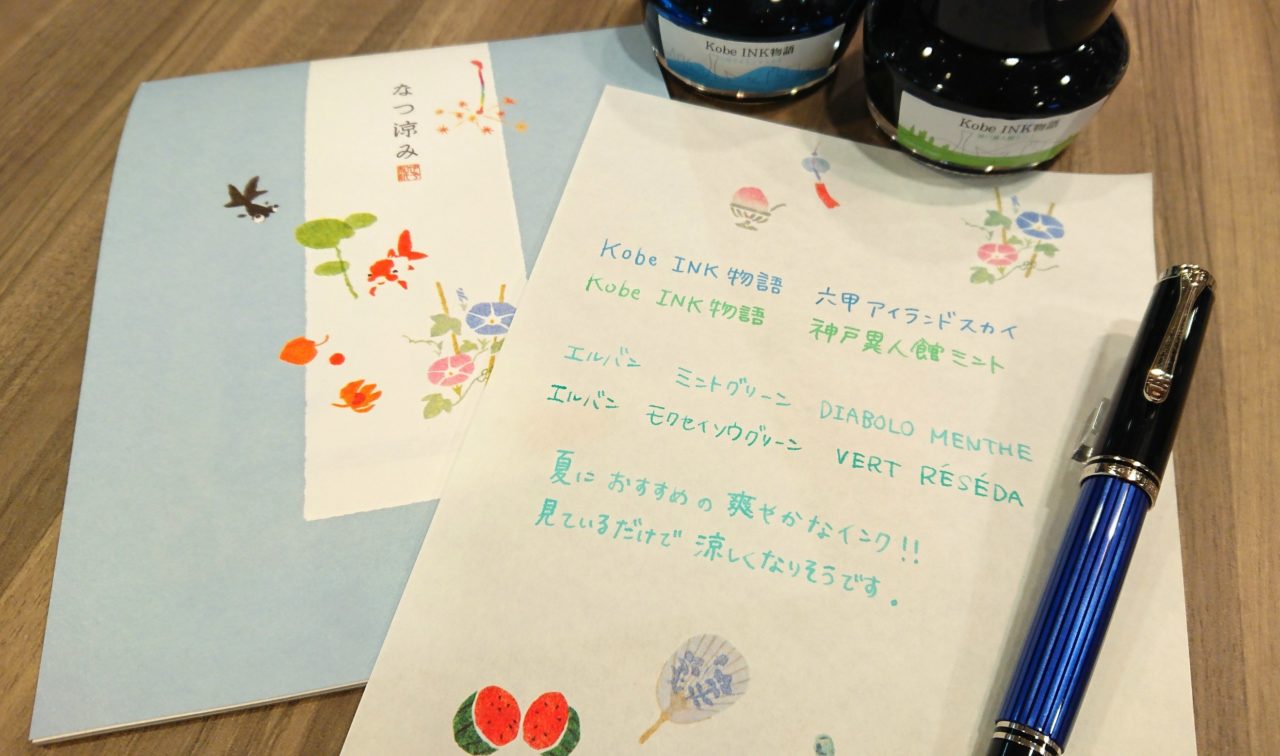 なつ涼み
Kobe INK物語
Kobe INK物語
Kobe INK物語 六甲アイランドスカイ
Kobe INK物語 神戸異人館ミント
エルバン ミントグリーン DIABOLO MENTHE
エルバン モクセイソウグリーン VERT RÉSÉDA
夏に おすすめの 爽やかなインク!!
見ているだけで 涼しくなりそうです.